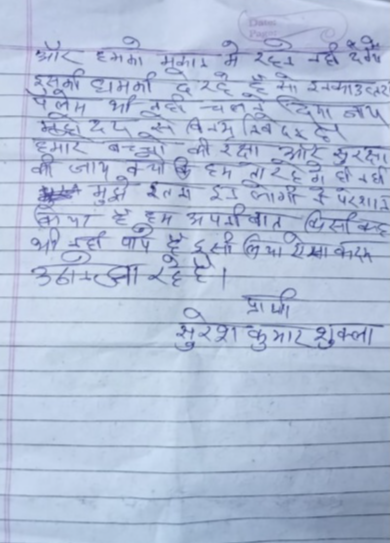 Date:
Page:
और हमको मकान में रहने नहीं देंगे
इसकी धमकी दे रहे हैं सो
भी नहीं चलने दिया जाय
से विनम्र निवेदन है।
हमारे बच्चों की रक्षा और सुरक्षा
की जाय क्यों कि हम तो रहे नहीं
मुझे इतना इन लोगों ने परेशान
किया है हम अपनी बात किसी से कह
भी नहीं पाये है इसी लिए ऐसा कदम
उठाने जा रहे है।
प्रार्थी
सुरेश कुमार शुक्ला